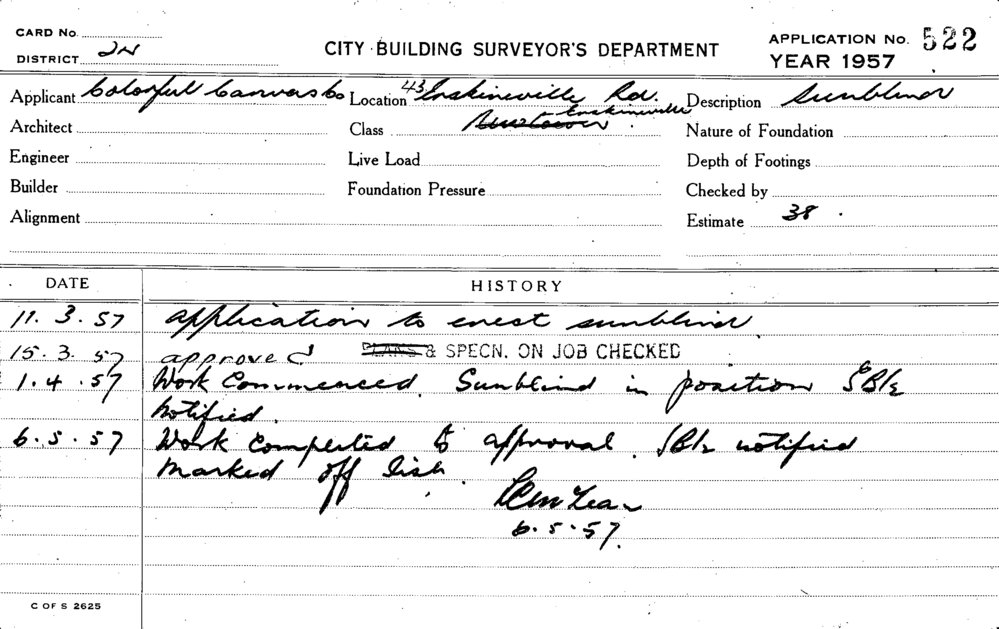 CARD No.
DISTRICT 2N
CITY BUILDING SURVEYOR'S DEPARTMENT
APPLICATION No. 522
YEAR 1957
Applicant Colorful Canvas Co Location 43 Erskineville Rd. Description Sunblind
Erskineville
Architect Class Newtown Nature of Foundation
Engineer Live Load Depth of Footings
Builder Foundation Pressure Checked by
Alignment Estimate 38
DATE HISTORY
11. 3. 57 application to erect sunblind.
15. 3. 57 approved PLANS & SPECN. ON JOB CHECKED
1. 4. 57 Work Commenced. Sunblind in position
notified.
6. 5. 57 Work Completed to approval. notified
marked off list.
6. 5. 57.
C OF S 2625